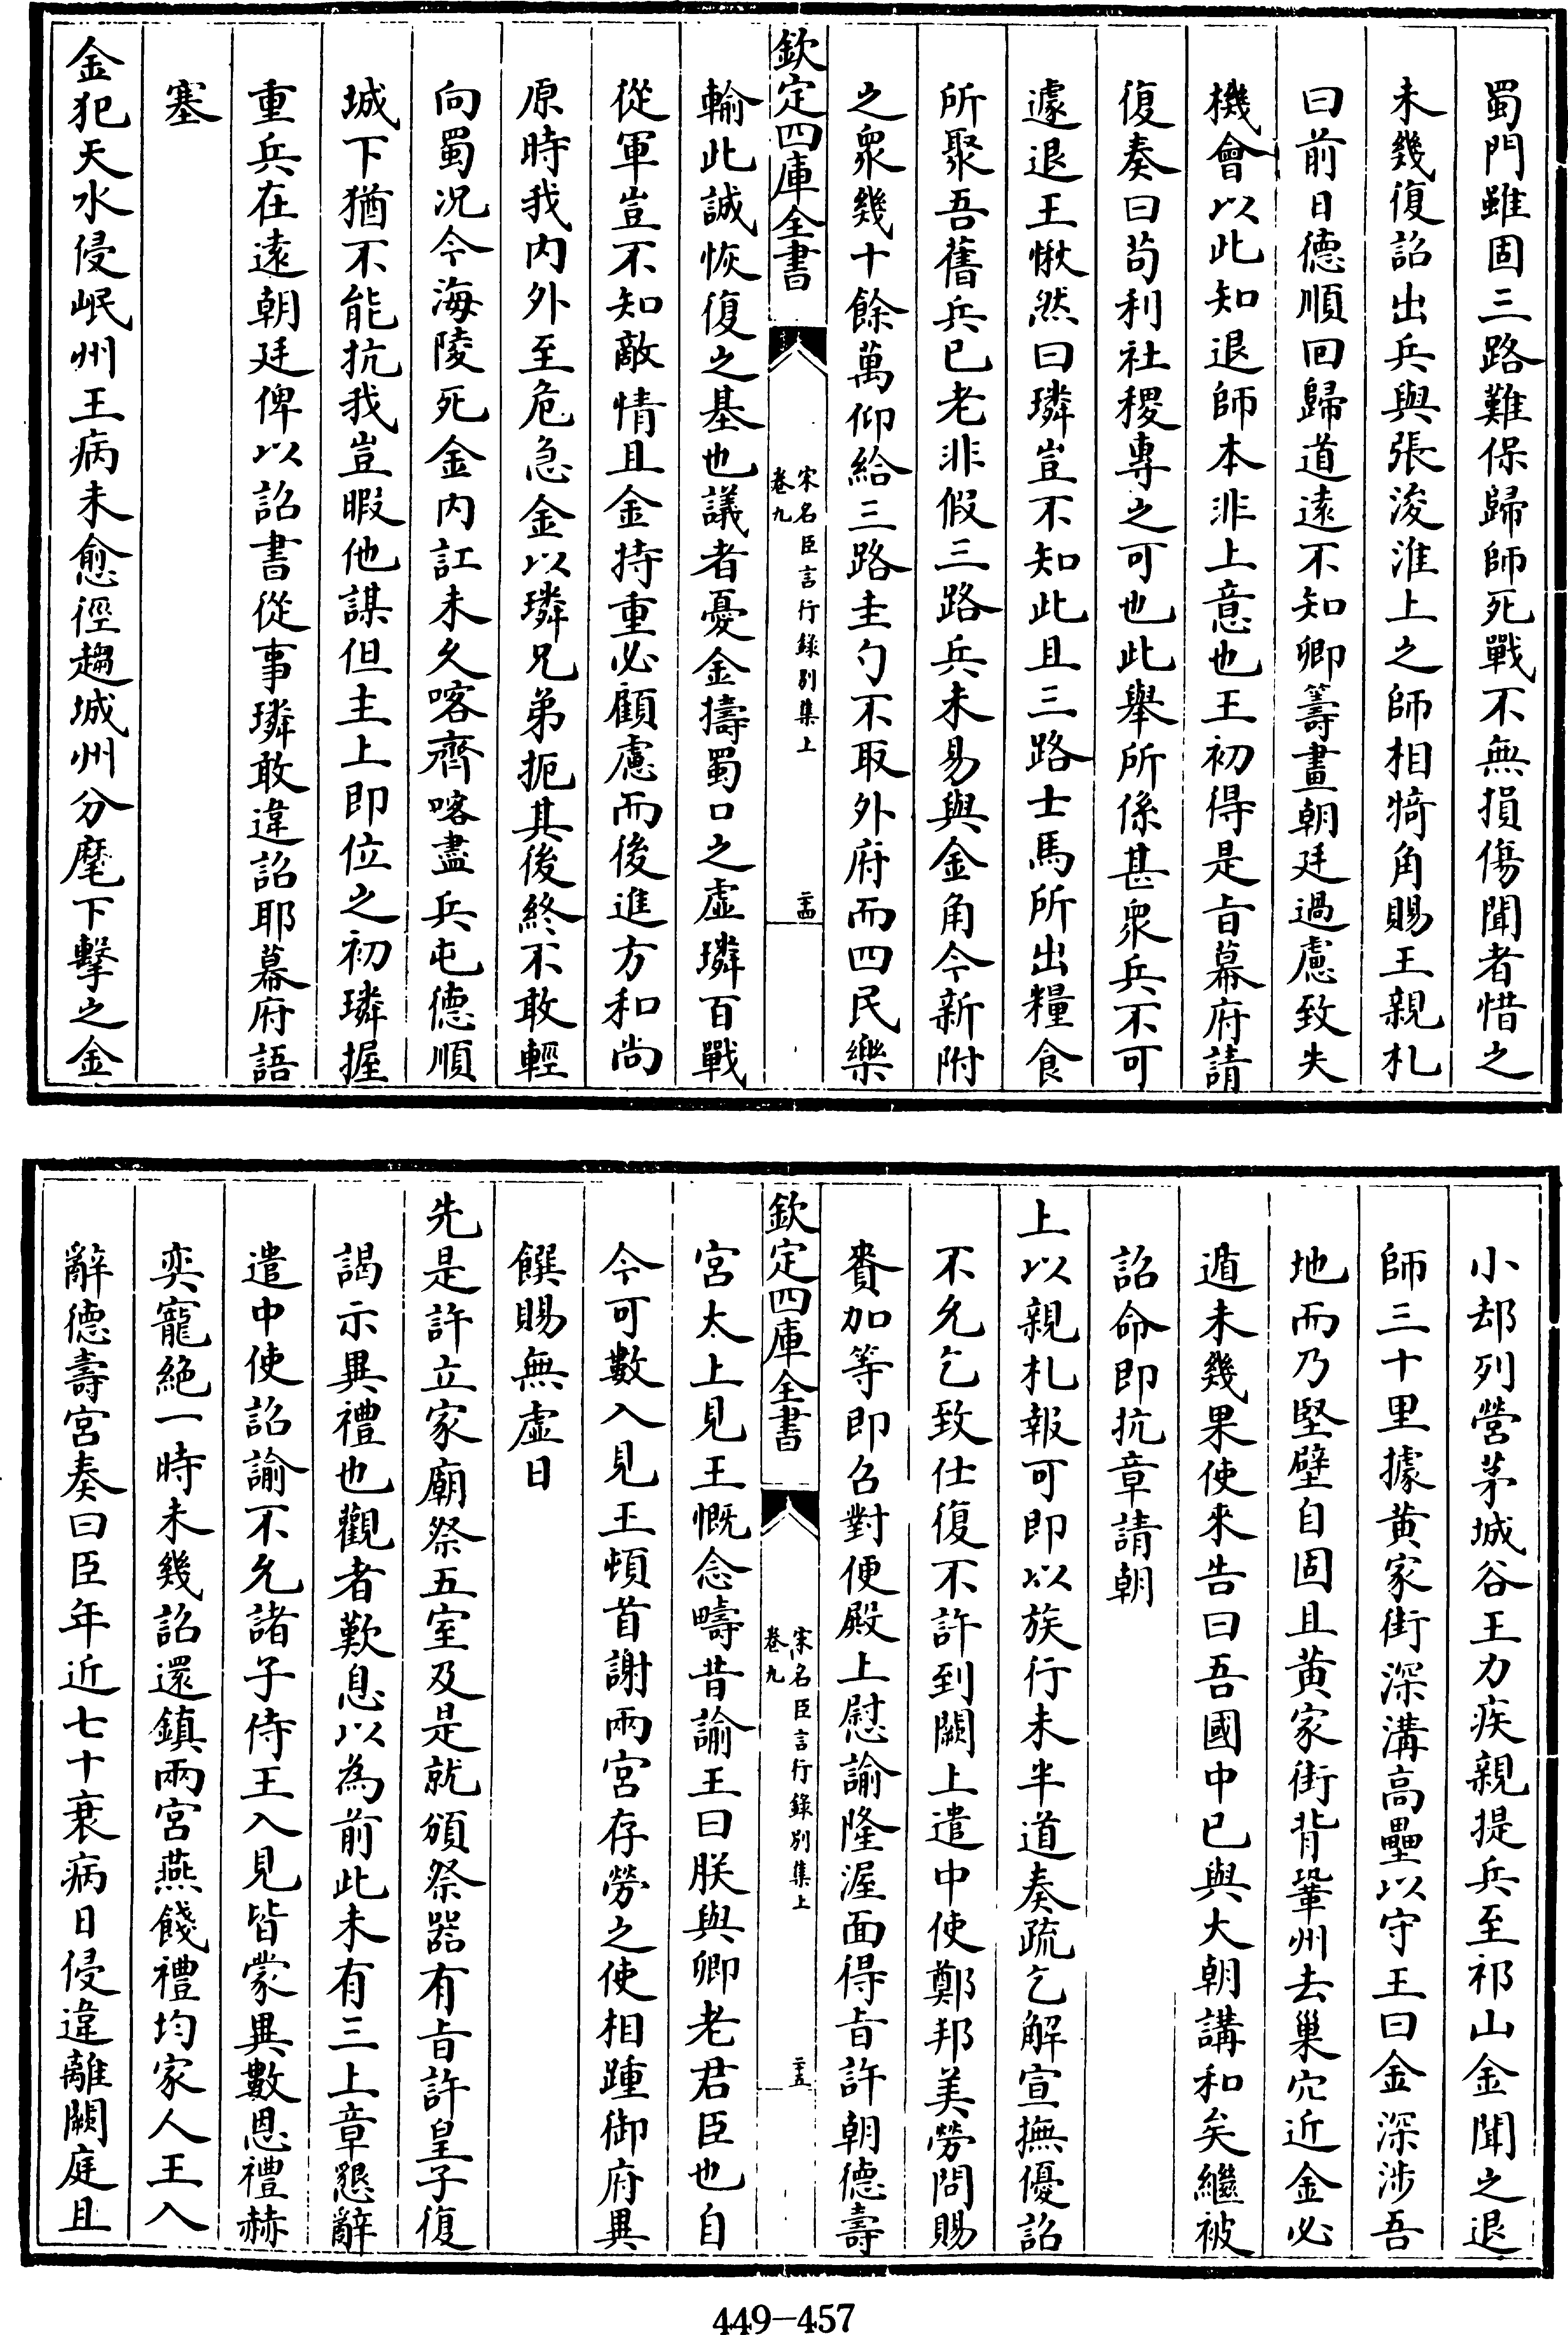 蜀門雖固三路難保歸師死戰不無損傷聞者惜之
未幾復詔出兵與張浚淮上之師相犄角賜王親札
曰前日德順回歸道遠不知卿籌畫朝廷過慮致失
機會以此知退師本非上意也王初得是旨幕府請
復奏曰苟利社稷專之可也此舉所係甚衆兵不可
遽退王愀然曰璘豈不知此且三路士馬所出糧食
所聚吾舊兵已老非假三路兵未易與金角今新附
之衆幾十餘萬仰給三路圭勺不取外府而四民樂
欽定四庫全書
宋名臣言行錄別集上
卷九
二十四
輸此誠恢復之基也議者憂金擣蜀口之虛璘百戰
從軍豈不知敵情且金持重必顧慮而後進方和尚
原時我内外至危急金以璘兄弟扼其後終不敢輕
向蜀况今海陵死金内訌未久喀齊喀盡兵屯德順
城下猶不能抗我豈暇他謀但主上即位之初璘握
重兵在遠朝廷俾以詔書從事璘敢違詔耶幕府語
塞
金犯天水侵岷州王病未愈徑趨城州分麾下擊之金
小却列營茅城谷王力疾親提兵至祁山金聞之退
師三十里據黄家街深溝高壘以守王曰金深涉吾
地而乃堅壁自固且黄家街背鞏州去巢穴近金必
遁未幾果使來告曰吾國中已與大朝講和矣繼被
詔命即抗章請朝
上以親札報可即以族行未半道奏疏乞解宣撫優詔
不允乞致仕復不許到闕上遣中使鄭邦美勞問賜
賚加等即召對便殿上慰諭隆渥面得旨許朝德壽
欽定四庫全書
宋名臣言行錄別集上
卷九
二十五
宮太上見王慨念疇昔諭王曰朕與卿老君臣也自
今可數入見王頓首謝兩宮存勞之使相踵御府異
饌賜無虛日
先是許立家廟祭五室及是就頒祭器有旨許皇子復
謁示異禮也觀者歎息以為前此未有三上章懇辭
遣中使詔諭不允諸子侍王入見皆蒙異數恩禮赫
奕寵絕一時未幾詔還鎮兩宮燕餞禮均家人王入
辭德壽宮奏曰臣年近七十衰病日侵違離闕庭且
449-457